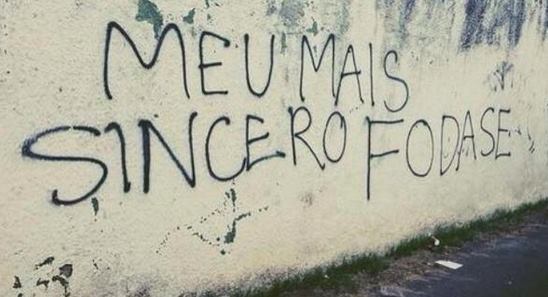 MEU MAIS
SINCERO FODASE